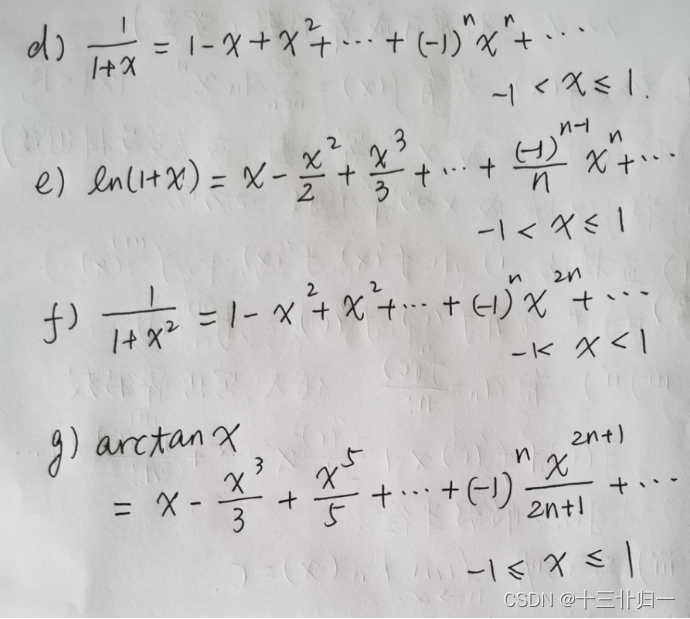 d) 1/(1+x) = 1 - x + x² + ⋯ + (-1)ⁿ xⁿ + ⋯
-1 < x ≤ 1.
e) ln(1+x) = x - x²/2 + x³/3 + ⋯ + (-1)ⁿ⁻¹/n xⁿ + ⋯
-1 < x ≤ 1
f) 1/(1+x²) = 1 - x² + x² + ⋯ + (-1)ⁿ x²ⁿ + ⋯
-1< x < 1
g) arctan x
= x - x³/3 + x⁵/5 + ⋯ + (-1)ⁿ x²ⁿ⁺¹/(2n+1) + ⋯
-1 ≤ x ≤ 1
CSDN @十三卝归一